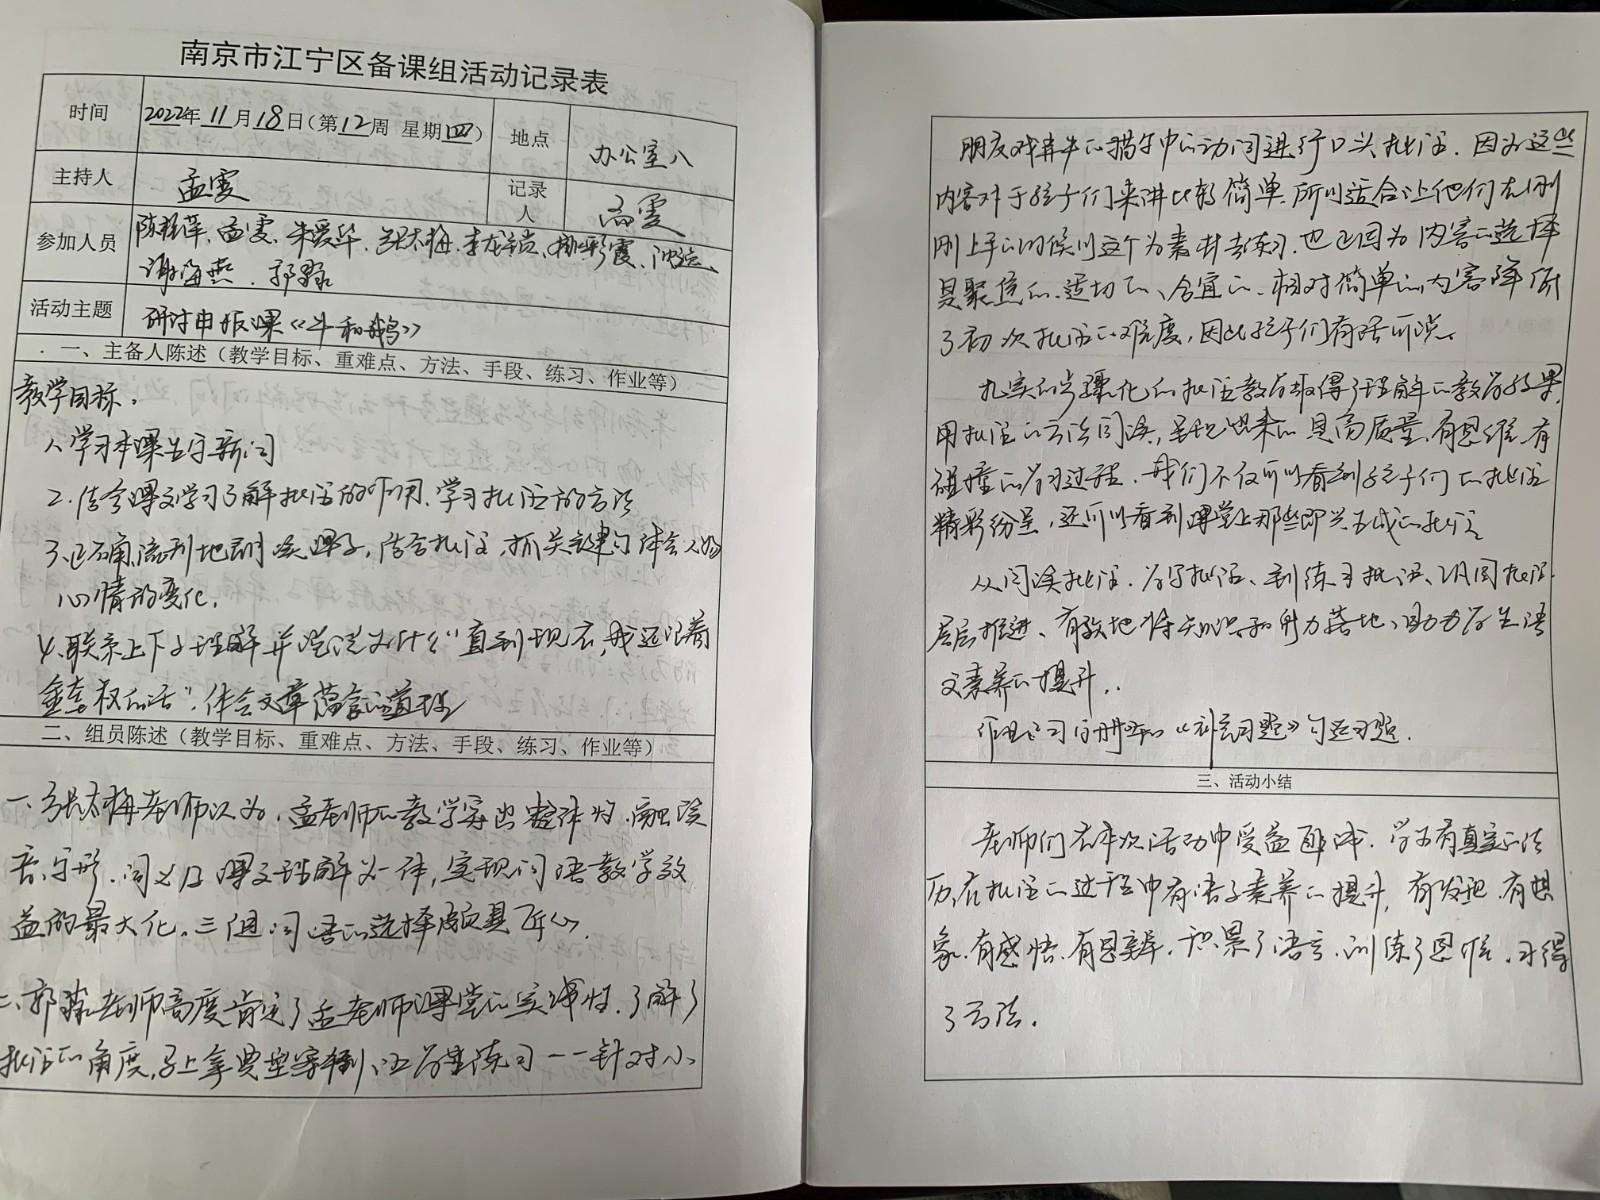 南京市江宁区备课组活动记录表
时间 2022年11月18日(第12周 星期四) 地点 办公室八
主持人 孟雯 记录人
参加人员 孟雯、朱爱华、
谢海燕、郭
活动主题 研讨申报课《牛和鹅》
一、主备人陈述(教学目标、重难点、方法、手段、练习、作业等)
教学目标:
1、学习本课生字新词
2、结合课文学习了解批注的作用、学习批注的方法
3、正确流利地朗读课文,结合批注,抓关键句体会人物
心情的变化.
4、联系上下文理解并说说为什么"直到现在,我还记着
金奎叔的话",体会文章蕴含的道理
二、组员陈述(教学目标、重难点、方法、手段、练习、作业等)
一、张太梅老师认为,孟老师的教学突出整体性,融读
音、字形、词义及课文理解为一体,实现词语教学效
益的最大化。三组词语的选择颇具匠心.
二、郭 老师高度肯定了孟老师课堂的实操性.了解了
批注的角度,马上拿典型案例让学生练习——针对小
朋友戏弄牛的描写中的动词进行口头批注.因为这些
内容对于孩子们来讲比较简单.所以适合让他们在刚
刚上手的时候以这个为素材去练习.也正因为内容的选择
是聚焦的、适切的、合宜的、相对简单的内容降低
了初次批注的难度,因此孩子们有话可说.
扎实的步骤化的批注教学取得了理解的教学效果.
用批注的方法阅读,呈现出来的是高质量、有思维、有
碰撞的学习过程.我们不仅可以看到孩子们的批注
精彩纷呈,还可以看到课堂上那些即兴生成的批注
从阅读批注、学写批注、到练习批注、巩固批注.
层层推进、有效地将知识和能力落地、助力学生语
文素养的提升..
《补充习题》 习题.
三、活动小结
老师们在本次活动中受益匪浅.学子有真实的经
历,在批注的过程中有语言素养的提升,有发现、有想
象、有感悟、有思辨.积累了语言、训练了思维、习得
了方法.